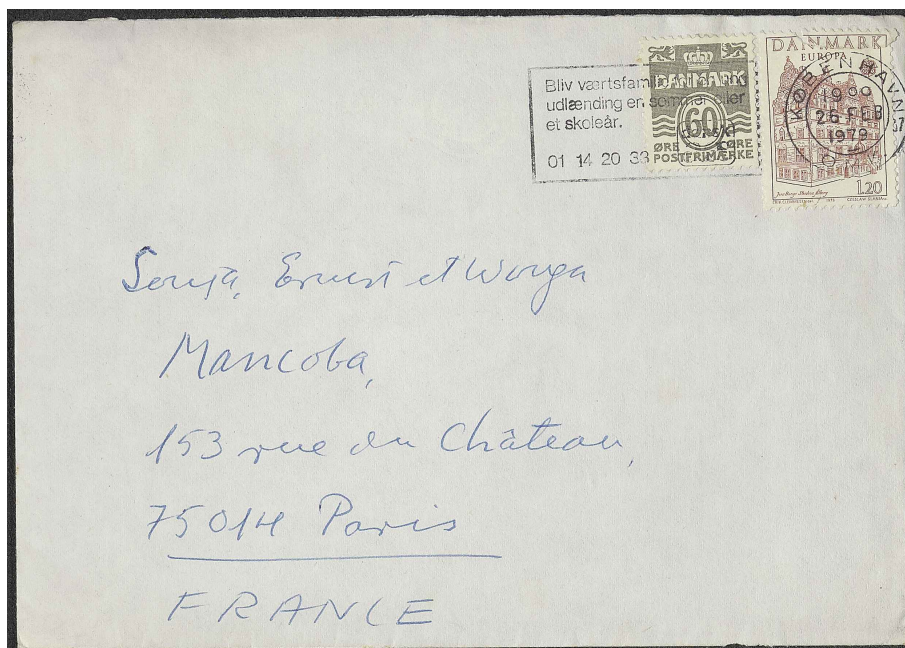 Bliv værtsfamilie
udlænding en sommer eller
et skoleår.
01 14 20 33
DANMARK
60
ØRE ØRE
POSTFRIMÆRKE
DANMARK
EUROPA
1.20
KØBENHAVN
26 FEB
1979
Sonja, Ernest et Wonga
Mancoba,
153 rue du Château,
75014 Paris
FRANCE